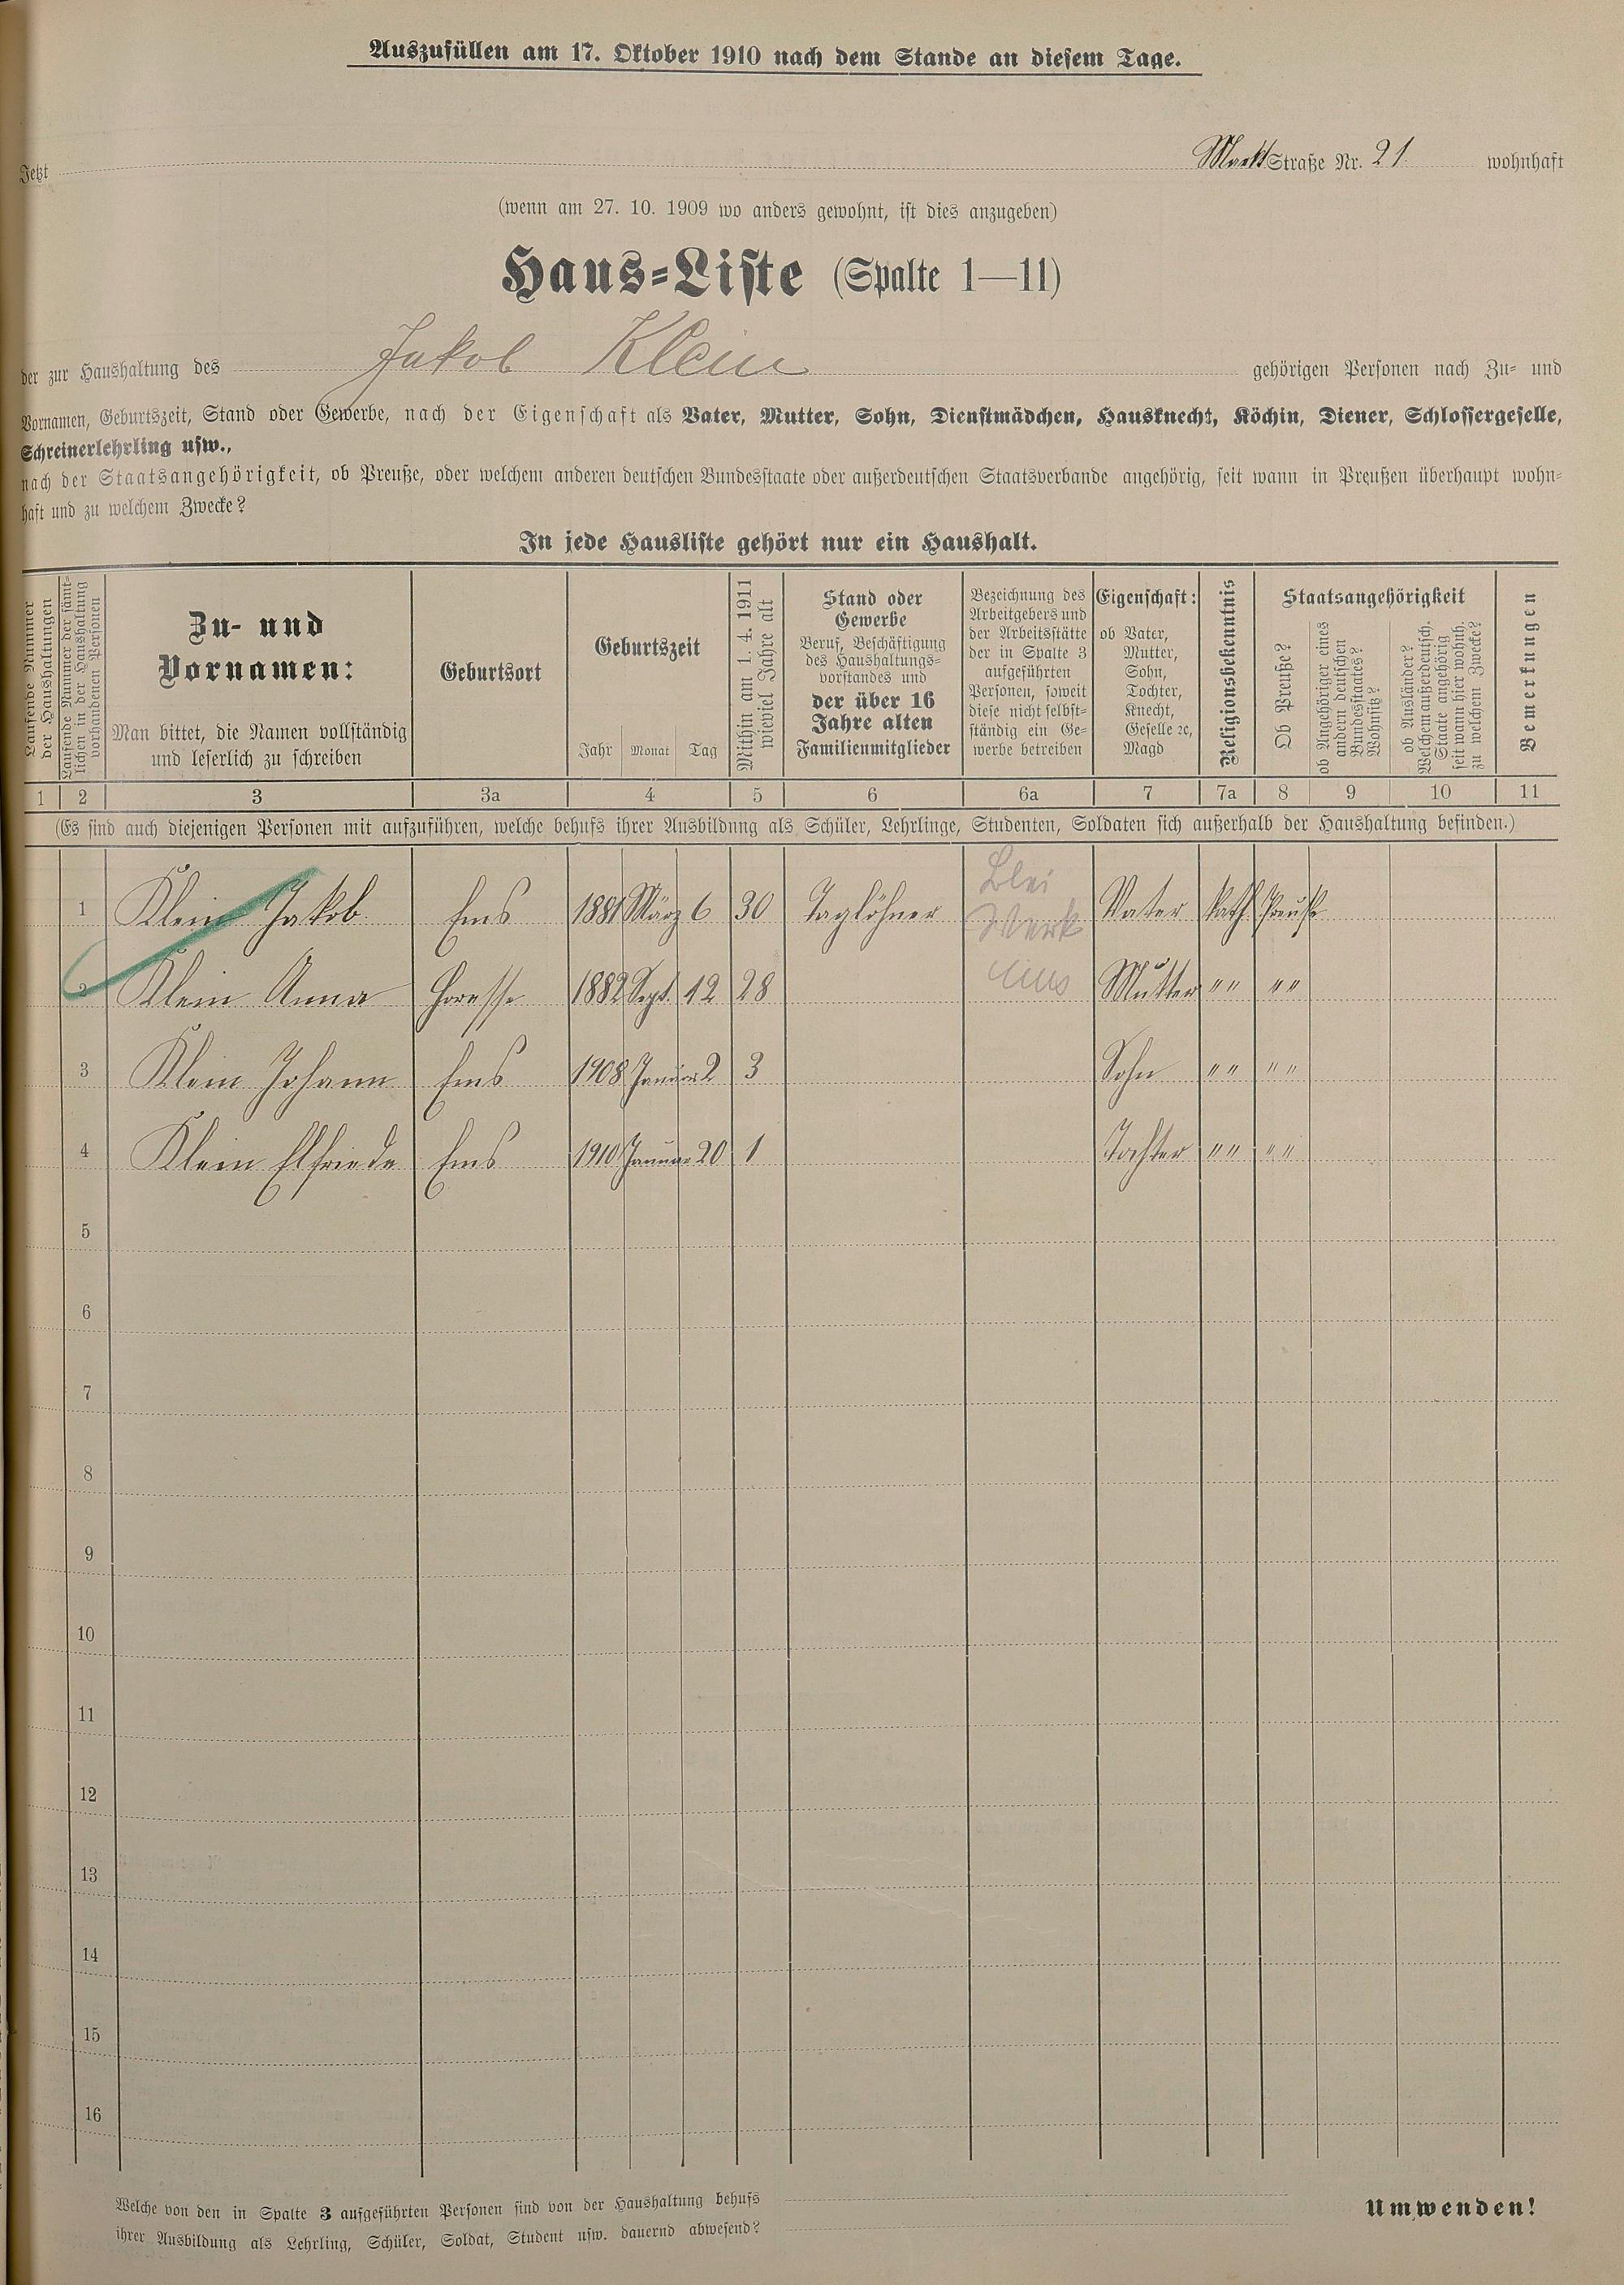 Auszufüllen am 17. Oktober 1910 nach dem Stande an diesem Tage.
Jetzt Markt Straße Nr. 21. wohnhaft
(wenn am 27. 10. 1909 wo anders gewohnt, ist dies anzugeben)
Haus-Liste (Spalte 1—11)
der zur Haushaltung des Jakob Klein gehörigen Personen nach Zu- und
Vornamen, Geburtszeit, Stand oder Gewerbe, nach der Eigenschaft als Vater, Mutter, Sohn, Dienstmädchen, Hausknecht, Köchin, Diener, Schlossergeselle,
Schreinerlehrling usw.,
nach der Staatsangehörigkeit, ob Preuße, oder welchem anderen deutschen Bundesstaate oder außerdeutschen Staatsverbande angehörig, seit wann in Preußen überhaupt wohn-
haft und zu welchem Zwecke?
In jede Hausliste gehört nur ein Haushalt.
Laufende Nummer
der Haushaltungen
Laufende Nummer der sämt-
lichen in der Haushaltung
vorhandenen Personen
Zu- und
Vornamen:
Man bittet, die Namen vollständig
und leserlich zu schreiben
Geburtsort
Geburtszeit
Jahr Monat Tag
Mithin am 1. 4. 1911
wieviel Jahre alt
Stand oder
Gewerbe
Beruf, Beschäftigung
des Haushaltungs-
vorstandes und
der über 16
Jahre alten
Familienmitglieder
Bezeichnung des
Arbeitgebers und
der Arbeitsstätte
der in Spalte 3
aufgeführten
Personen, soweit
diese nicht selbst-
ständig ein Ge-
werbe betreiben
Eigenschaft:
ob Vater,
Mutter,
Sohn,
Tochter,
Knecht,
Geselle ꝛc,
Magd
Religionsbekenntnis
Staatsangehörigkeit
Ob Preuße?
ob Angehöriger eines
andern deutschen
Bundesstaates?
Wohnsitz?
ob Ausländer?
Welchem außerdeutsch.
Staate angehörig
seit wann hier wohnh.
zu welchem Zwecke?
Bemerkungen
1 2 3 3a 4 5 6 6a 7 7a 8 9 10 11
(Es sind auch diejenigen Personen mit aufzuführen, welche behufs ihrer Ausbildung als Schüler, Lehrlinge, Studenten, Soldaten sich außerhalb der Haushaltung befinden.)
1 Klein Jakob. Ems 1881 März 6 30 Taglöhner Blei Werk Ems Vater kath Preuße
2 Klein Anna 1882 Sept. 12 28 Mutter " " " "
3 Klein Johann Ems 1908 Januar 2 3 Sohn " " " "
4 Klein Elfriede Ems 1910 Januar 20 1 Tochter " " " "
5
6
7
8
9
10
11
12
13
14
15
16
Welche von den in Spalte 3 aufgeführten Personen sind von der Haushaltung behufs
ihrer Ausbildung als Lehrling, Schüler, Soldat, Student usw. dauernd abwesend?
Umwenden!